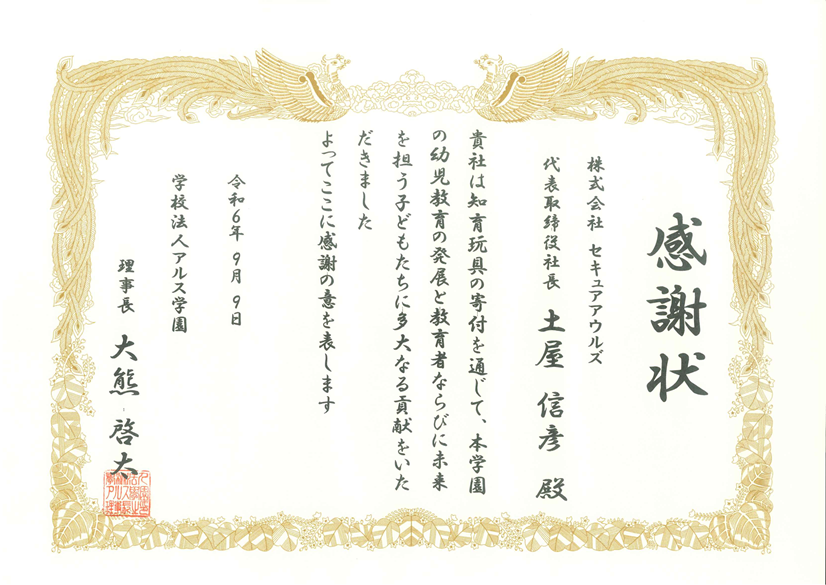 感謝状
株式会社 セキュアアウルズ
代表取締役社長 土屋 信彦 殿
貴社は知育玩具の寄付を通じて、本学園
の幼児教育の発展と教育者ならびに未来
を担う子どもたちに多大なる貢献をいた
だきました
よってここに感謝の意を表します
令和6年 9月 9日
学校法人アルス学園
理事長 大熊 啓太